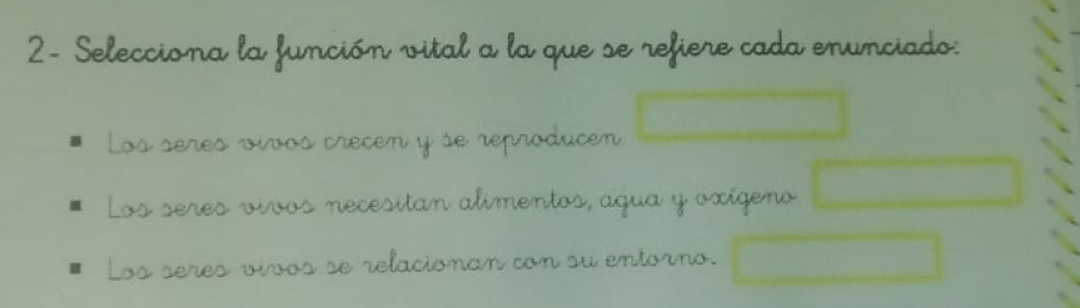 2- Selecciona la función vital a la que se refiere cada enunciado:
▪ Los seres vivos crecen y se reproducen.
▪ Los seres vivos necesitan alimentos, agua y oxígeno.
▪ Los seres vivos se relacionan con su entorno.